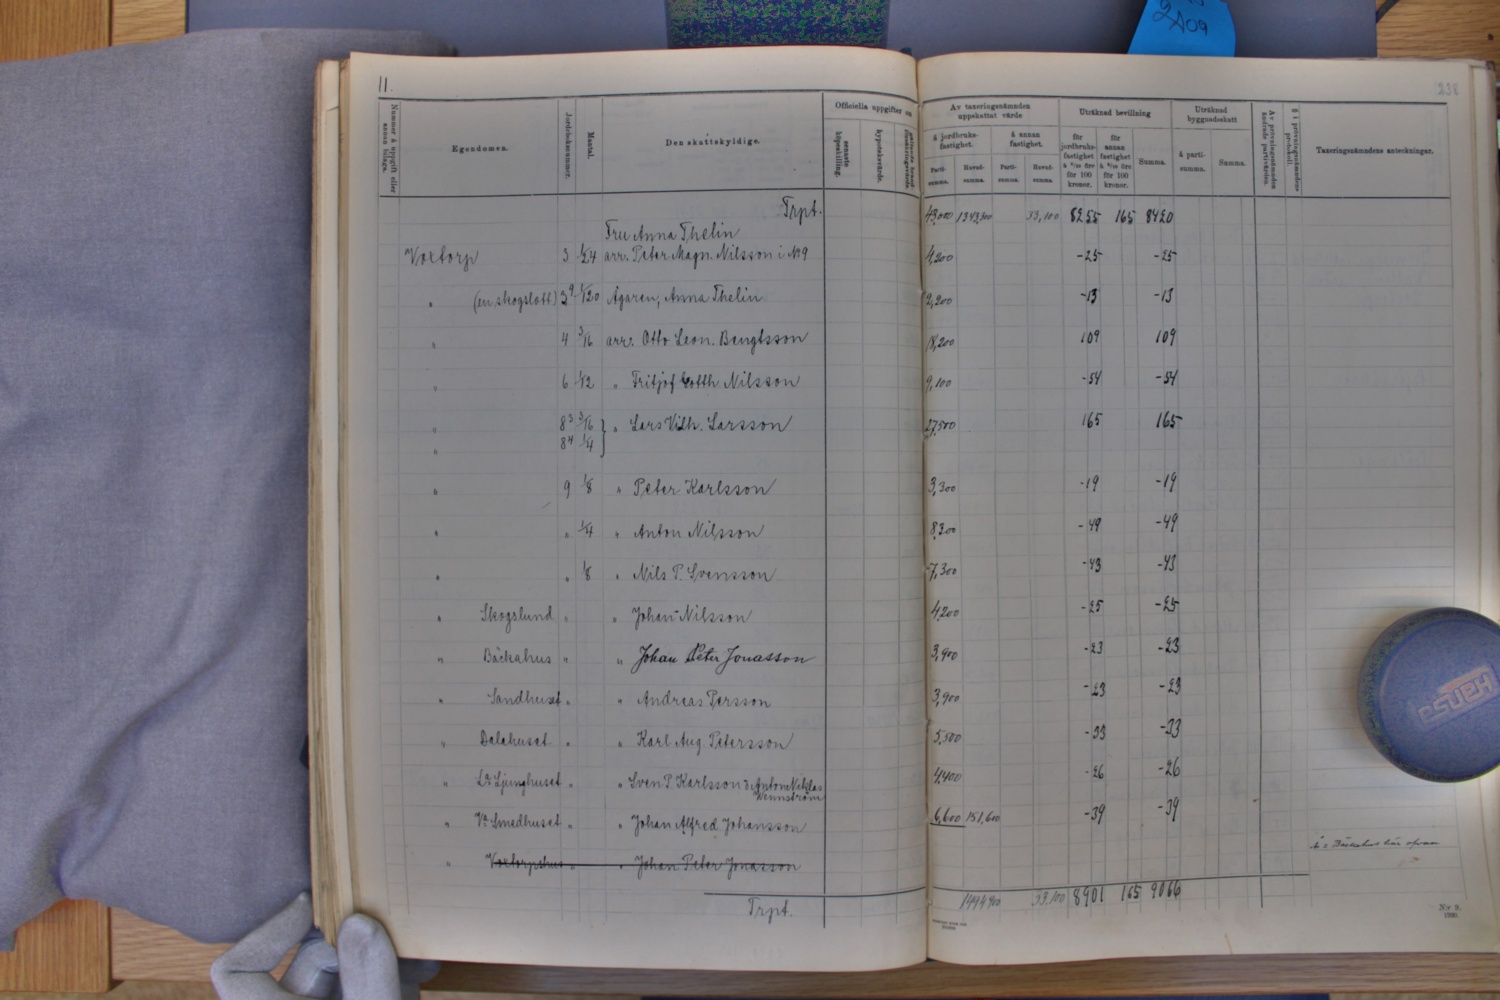 2A09
11.
238
Nummer å uppgift eller annan bilaga.
Egendomen.
Jordeboksnummer.
Mantal.
Den skattskyldige.
Officiella uppgifter om
senaste köpeskilling.
hypoteksvärde.
Av taxeringsnämnden uppskattat värde
å jordbruksfastighet.
å annan fastighet.
Partisumma.
Huvudsumma.
Partisumma.
Huvudsumma.
Uträknad bevillning
för jordbruksfastighet
för 100 kronor.
för annan fastighet
för 100 kronor.
Summa.
Uträknad byggnadsskatt
å partisumma.
Summa.
Av prövningsnämnden ändrade partivärden.
§ i prövningsnämndens protokoll.
Taxeringsnämndens anteckningar.
Trpt. 43,000 33,100 8255 165 8420
Fru Anna Thelin
Voxtorp 3 1/24 arr. Peter Magn. Nilsson i No 9 4,200 -25 -25
" (en skogslott) 3² 1/120 Ägaren, Anna Thelin 2,200 -13 -13
" 4 3/16 arr. Otto Leon. Bengtsson 18,200 109 109
" 6 1/12 " Fritjof Gotth Nilsson 9,100 -54 -54
" 8³ 3/16 } " Lars Vilh. Larsson 27,500 165 165
" 8⁴ 1/4
" 9 1/8 " Peter Karlsson 3,300 -19 -19
" " 1/4 " Anton Nilsson 8,300 -49 -49
" " 1/8 " Nils P. Svensson 7,300 -43 -43
" Skogslund " " Johan Nilsson 4,200 -25 -25
" Bäckahus " " Johan Peter Jonasson 3,900 -23 -23
" Sandhuset " " Andreas Persson 3,900 -23 -23
" Dalahuset " " Karl Aug. Petersson 5,500 -33 -33
" La Ljunghuset " " Sven P. Karlsson & Anton Niklas Wennström 4,400 -26 -26
" Va Smedhuset " " Johan Alfred Johansson 6,600 151,600 -39 -39
" Voxtorpshus " " Johan Peter Jonasson
Trpt. 33,100 8901 165 9066
N:r 9.
Hansa